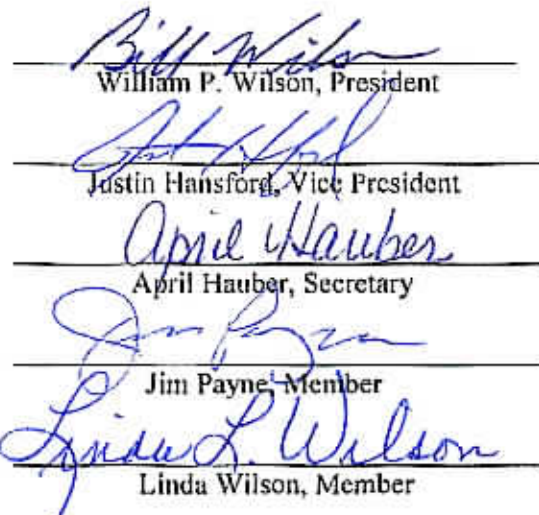 Bill Wilson
William P. Wilson, President
Justin Hansford, Vice President
April Hauber
April Hauber, Secretary
Jim Payne
Jim Payne, Member
Linda L. Wilson
Linda Wilson, Member